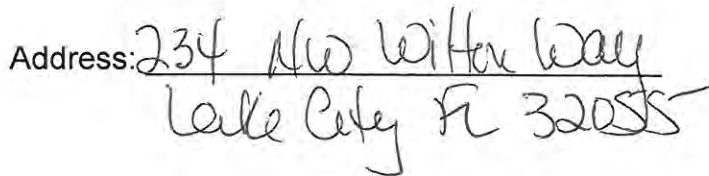 Address: 234 NW Wilton Way
Lake City FL 32055